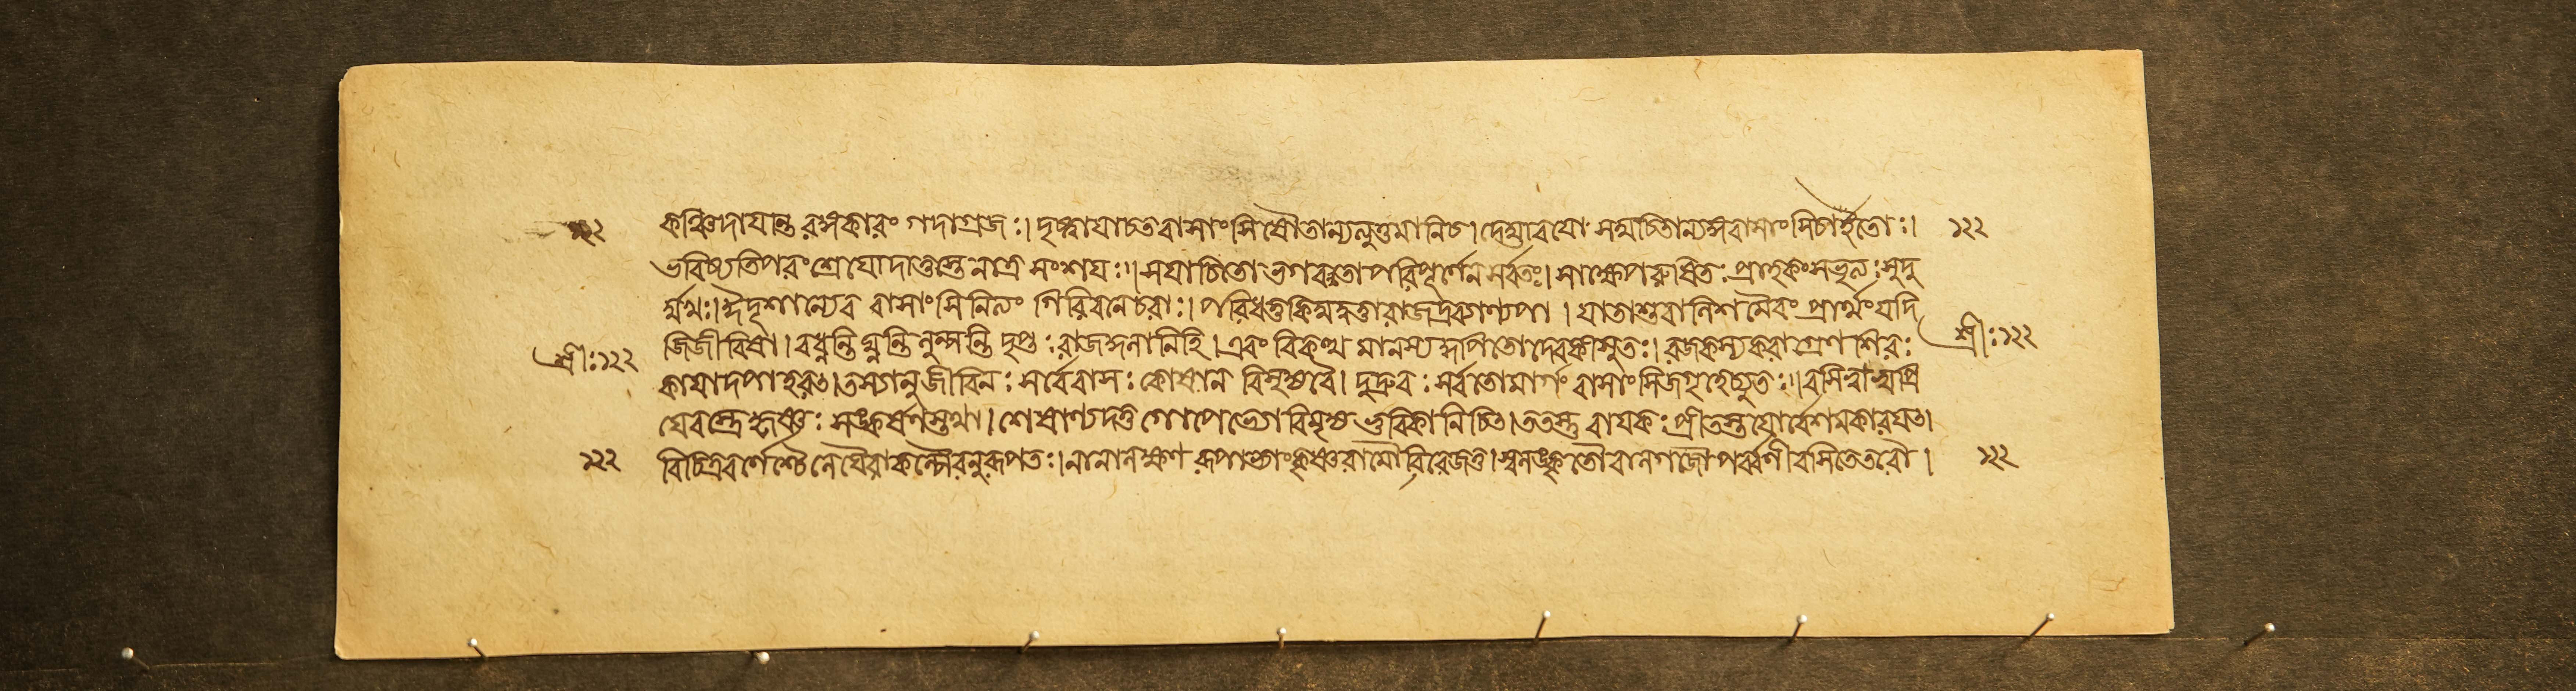 ১২২ কঞ্চিদাযান্ত রঙ্গকারং গদাগ্রজঃ। দৃষ্ট্বাযাচত বাসাংসি ধৌতান্যত্যুত্তমানি চ। দেহ্যাবযোঃ সমুচিতান্যঙ্গবাসাংসি চার্হতোঃ। ১২২
ভবিষ্যতি পরং শ্রেযো দাতুস্তে নাত্র সংশযঃ॥ সযাচিতো ভগবতা পরিপূর্ণেন সর্বতঃ। সাক্ষেপং রুষিতঃ প্রাহ সুদু
ঈদৃশান্যেব বাসাংসি নিত্যং গিরিবনেচরাঃ। পরিধত্ত কিমুদ্বৃত্তা রাজদ্রব্যাণ্য যাতাশু বালিশা মৈবং প্রার্থ্যং যদি
শ্রীঃ১২২ জিজীবিষা। বধ্নন্তি ঘ্নন্তি লুম্পন্তি দৃপ্তং রাজকুলানি হি। এবং বিকত্থমানস্য কুপিতো দেবকীসুতঃ। রজকস্য করাগ্রেণ শিরঃ শ্রীঃ১২২
কাযাদপাহরৎ। তস্যানুজীবিনঃ সর্বে বাসঃ কোষান বিসৃজ্য বৈ। দুদ্রুবুঃ সর্বতো মার্গং বাসাংসি জগৃহেচ্যুতঃ॥ বসিত্বাত্মপ্রি
যে বস্ত্রে কৃষ্ণঃ সঙ্কর্ষণস্তথা। শেষাণ্যাদত্ত গোপেভ্যো বিসৃজ্য ভুবি কানিচিৎ। ততস্তু বাযকঃ প্রীতস্তযোর্বেশমকারযৎ।
১২২ বিচিত্রবর্ণৈশ্চৈলেযৈরাকল্পৈরনুরূপতঃ। নানালক্ষণ রূপাভ্যাং কৃষ্ণরামৌ বিরেজতু। স্বলঙ্কৃতৌ বালগজৌ পর্ব্বণীব সিতেতরৌ। ১২২